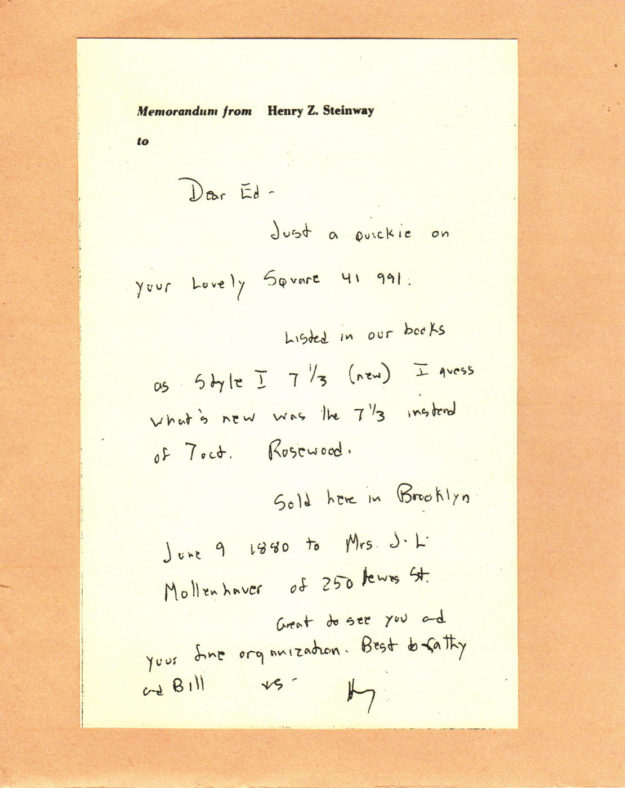 Memorandum from Henry Z. Steinway
to
Dear Ed -
Just a quickie on
your Lovely Square 41 991.
Listed in our books
as Style I 7 1/3 (new) I guess
what's new was the 7 1/3 instead
of 7 oct. Rosewood.
Sold here in Brooklyn
June 9 1880 to Mrs. J. L.
Mollenhauer of 250 St.
Great to see you and
your fine organization. Best to
and Bill